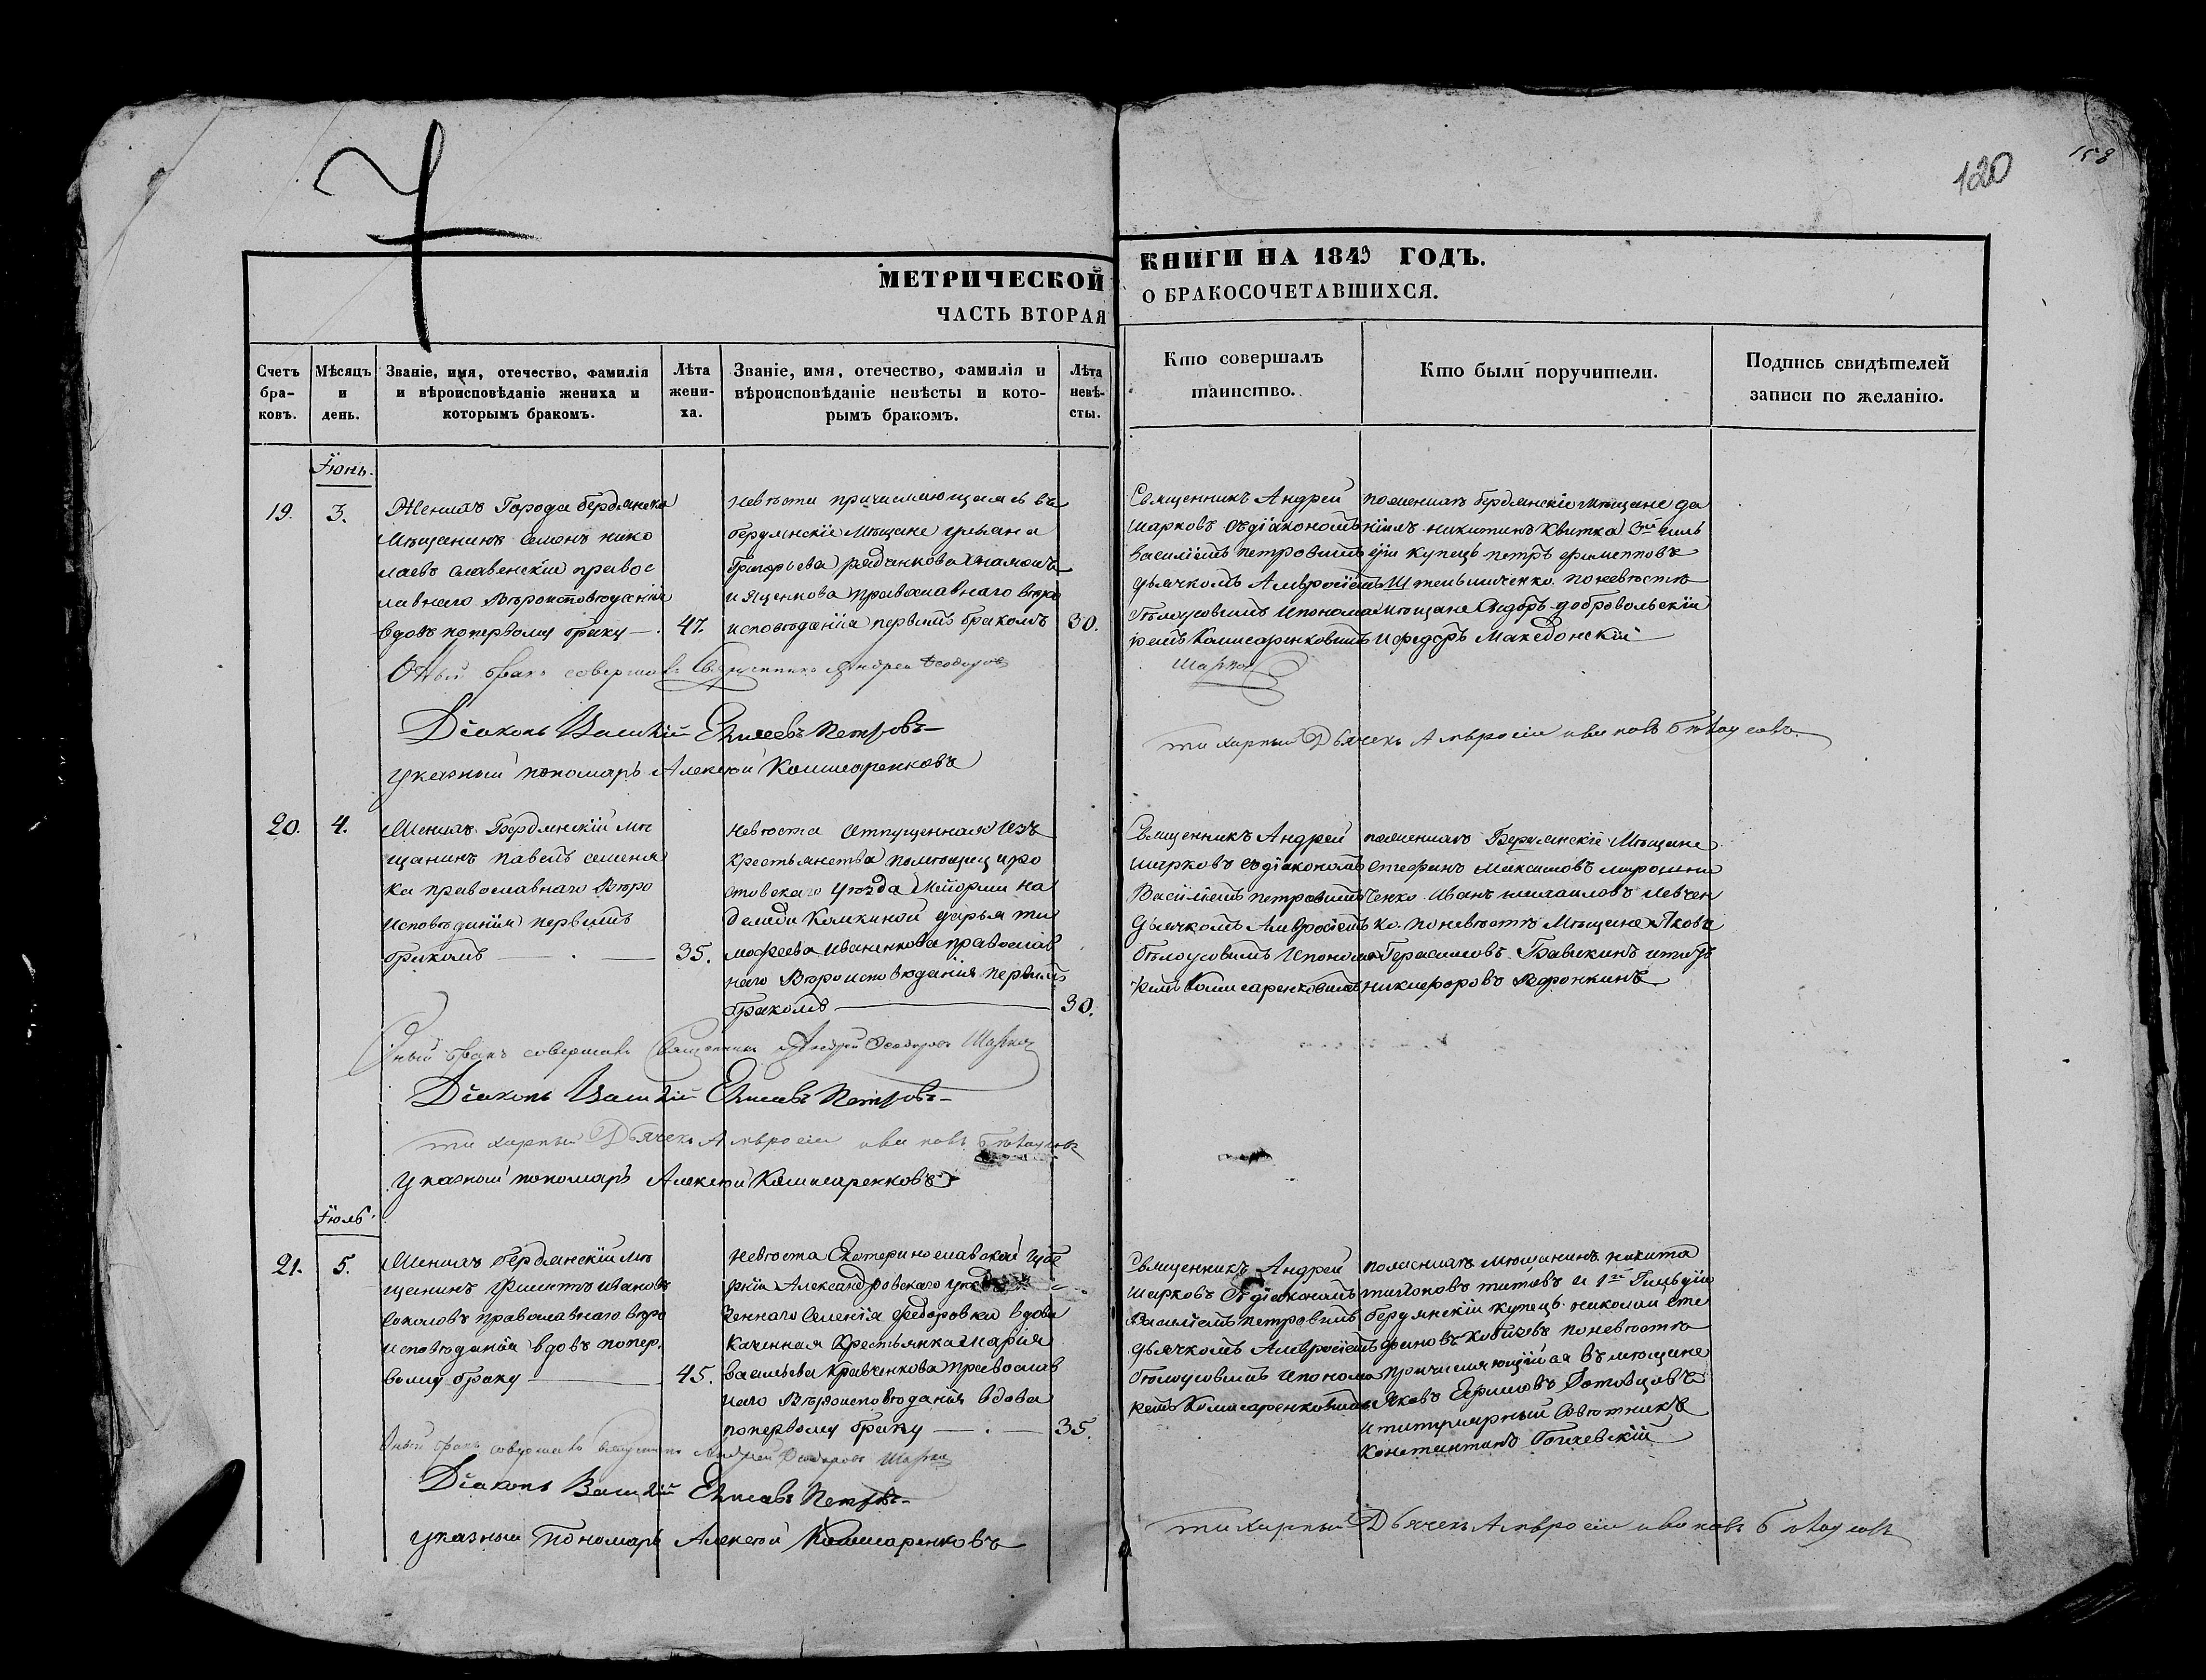 120
158
МЕТРИЧЕСКОЙ
ЧАСТЬ ВТОРАЯ
КНИГИ НА 1849 ГОДЪ.
О БРАКОСОЧЕТАВШИХСЯ.
Счетъ бра-ковъ.
Мѣсяцъ и день.
Званіе, имя, отечество, фамилія и вѣроисповѣданіе жениха и которымъ бракомъ.
Лѣта жени-ха.
Званіе, имя, отечество, фамилія и вѣроисповѣданіе невѣсты и кото-рымъ бракомъ.
Лѣта невѣ-сты.
Кто совершалъ таинство.
Кто были поручители.
Подпись свидѣтелей записи по желанію.
Іюнь.
19.
3.
Женихъ Города бердянска
Мѣщанинъ Семенъ нико
лаевъ славенскій правос
лавнаго Вѣроисповѣданія
вдовъ попервому браку
47.
невѣста причисляющаяся въ
бердянскіе Мѣщане ульяна
Григорьева
православнаго вѣро
исповѣданія первымъ бракомъ
30.
Священникъ Андрей
Шарковъ съ діакономъ
Василіемъ петровымъ
дьячкомъ Амвросіемъ
бѣлоусовымъ Ипонома
ремъ Комисаренковымъ
пожениху бердянскіе Мѣщане да
ніилъ никитинъ Квитка 3й гиль
діи купецъ петръ филипповъ
поневѣстѣ
мѣщане Сидоръ добровольскій
и федоръ Македонскій
Оный бракъ совершалъ Священникъ Андрей Феодоровъ
Шарковъ
Діаконъ Василій Елисеевъ Петровъ
стихарный Дьячекъ Амвросій ивановъ бѣлоусовъ
указный пономарь Алексѣй Комисаренковъ
20.
4.
Женихъ Бердянскій мѣ
щанинъ павелъ семеня
ка православнаго Вѣро
исповѣданія первымъ
бракомъ
35.
невѣста отпущенная изъ
крестьянства помѣщицы ро
стовскаго уѣзда Маіорши На
дежды Камкиной дарья ти
мофеева иваненкова православ
наго Вѣроисповѣданія первымъ
бракомъ
30.
Священникъ Андрей
шарковъ съ діакономъ
Василіемъ петровымъ
дьячкомъ Амвросіемъ
бѣлоусовымъ Ипонома
ремъ Комисаренковымъ
пожениху Бердянскіе Мѣщане
стефанъ Максимовъ мирошни
ченко Иванъ михаиловъ левчен
ко. поневѣстѣ Мѣщане Яковъ
Герасимовъ
никифоровъ
Оный бракъ совершалъ Священникъ Андрей Феодоровъ Шарковъ
Діаконъ Василій Елисеевъ Петровъ
стихарный Дьячекъ Амвросій ивановъ бѣлоусовъ
Указный пономарь Алексѣй Комисаренковъ
Іюль.
21.
5.
Женихъ бердянскій мѣ
щанинъ Филиппъ Ивановъ
соколовъ православнаго вѣро
исповѣданія вдовъ попер
вому браку
45.
невѣста Екатеринославской губе
рніи Александровскаго уѣзда
зеннаго селенія федоровки вдова
казенная Крестьянка Марія
васильева Кравченкова православ
наго Вѣроисповѣданія вдова
попервому браку
35.
Священникъ Андрей
шарковъ съ діакономъ
Василіемъ петровымъ
дьячкомъ Амвросіемъ
бѣлоусовымъ Ипонома
ремъ Комисаренковымъ
пожениху мѣщанинъ никита
титовъ и 1й Гильдіи
бердянскій купецъ николай сте
фановъ Кобизевъ поневѣстѣ
причисляющійся въ мѣщане
Яковъ Ефимовъ
и титулярный Совѣтникъ
Константинъ
Оный бракъ совершалъ священникъ Андрей Феодоровъ Шарковъ
Діаконъ Василій Елисеевъ Петровъ
стихарный Дьячекъ Амвросій ивановъ бѣлоусовъ
указный Пономарь Алексѣй Комисаренковъ